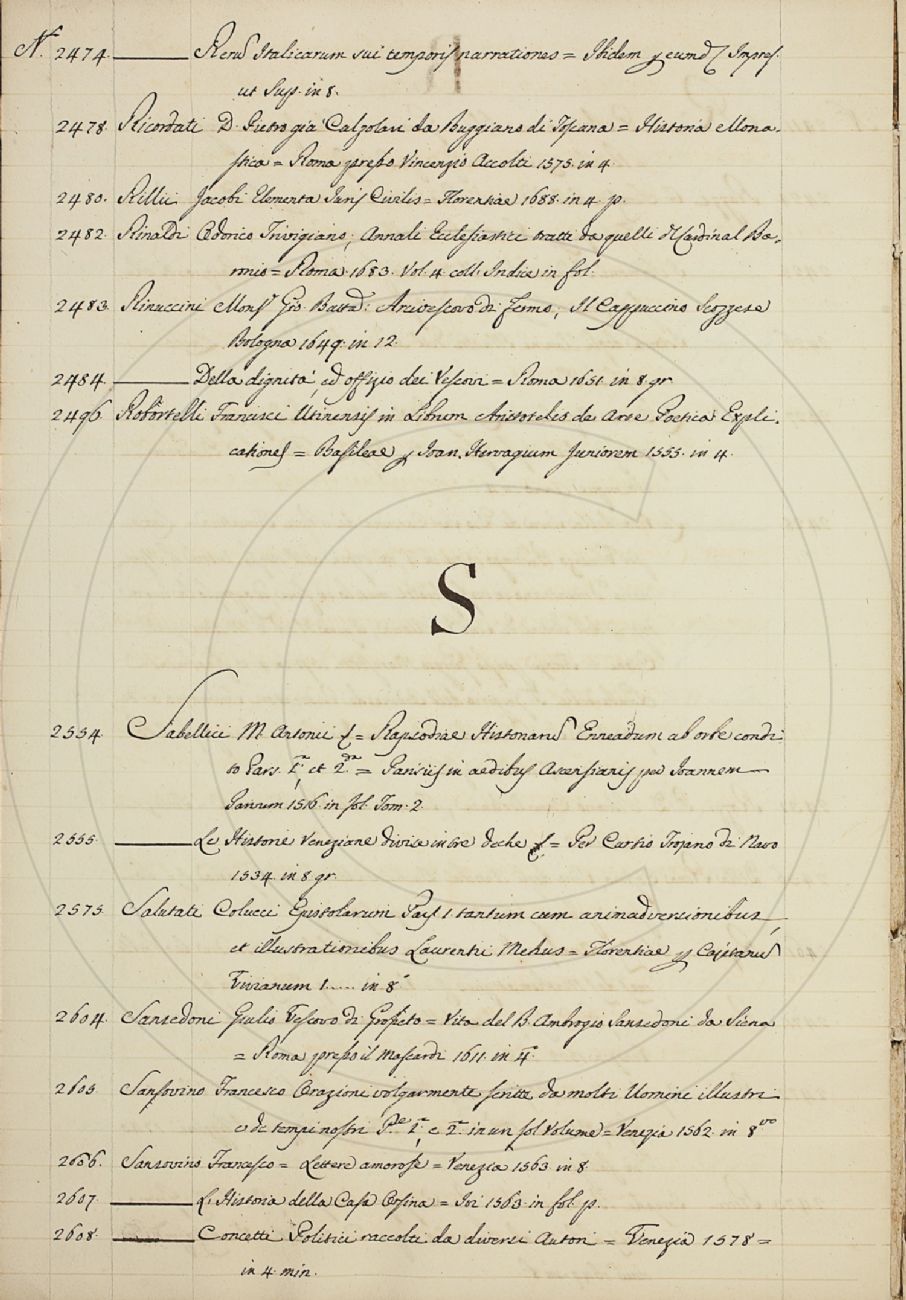 N. 2474. ——— Rerū Italicarum sui temporis narrationes = Ibidem p eumdꝫ Impres.
ut supp. in 8.
2478. Ricordati D. Pietro già Calzolari da Buggiano di Toscana = Historia Mona-
stica = Roma presso Vincenzio Accolti 1575. in 4.
2480. Rillii Jacobi Elementa Juris Civilis = Florentiae 1688. in 4. p.
2482. Rinaldi Odorico Trivigiano, Annali Ecclesiastici tratti da quelli del Cardinal Ba-
ronio = Roma 1683. Vol. 4. coll. Indice in fol.
2483. Rinuccini Monsr. Gio. Batta. Arcivescovo di Fermo, Il Cappuccino Scozzese
Bologna 1649. in 12.
2484. ——— Della dignità, ed offizio dei Vescovi = Roma 1651. in 8. gr.
2496. Robortelli Francisci Utinensis in Librum Aristotelis de Arte Poetica Expli-
cationes = Basileae p Joan. Hervagium Juniorem 1555. in 4.
S
2554. Sabellici M. Antonii = Rapsodiae Historiarū Enneadum ab orbe condi-
to Pars 1.a et 2.da = Parisiis in aedibus Ascensianis per Joannem
Parvum 1516. in fol. Tom. 2.
2555. ——— Le Historie Veneziane divise in tre deche = Per Curtio Trojano di Navo
1534. in 8. gr.
2575. Salutati Colucci Epistolarum Pars 1. tantum cum animadversionibus,
et illustrationibus Laurentii Mehus = Florentiae p Cajetanū
Vivianum 1..... in 8.o
2604. Sansedoni Giulio Vescovo di Grosseto = Vita del B. Ambrogio Sansedoni da Siena
= Roma presso il Mascardi 1611. in 4.
2605. Sansovino Francesco Orazioni volgarmente scritte da molti Uomini illustri
e de tempi nostri P.e 1.a, e 2.a in un sol Volume = Venezia 1562. in 8.vo
2606. Sansovino Francesco = Lettere amorose = Venezia 1563. in 8.
2607. ——— L'Historia della Casa Orsina = Ivi 1565. in fol. p.
2608. ——— Concetti Politici raccolti da diversi Autori = Venezia 1578 =
in 4. min.